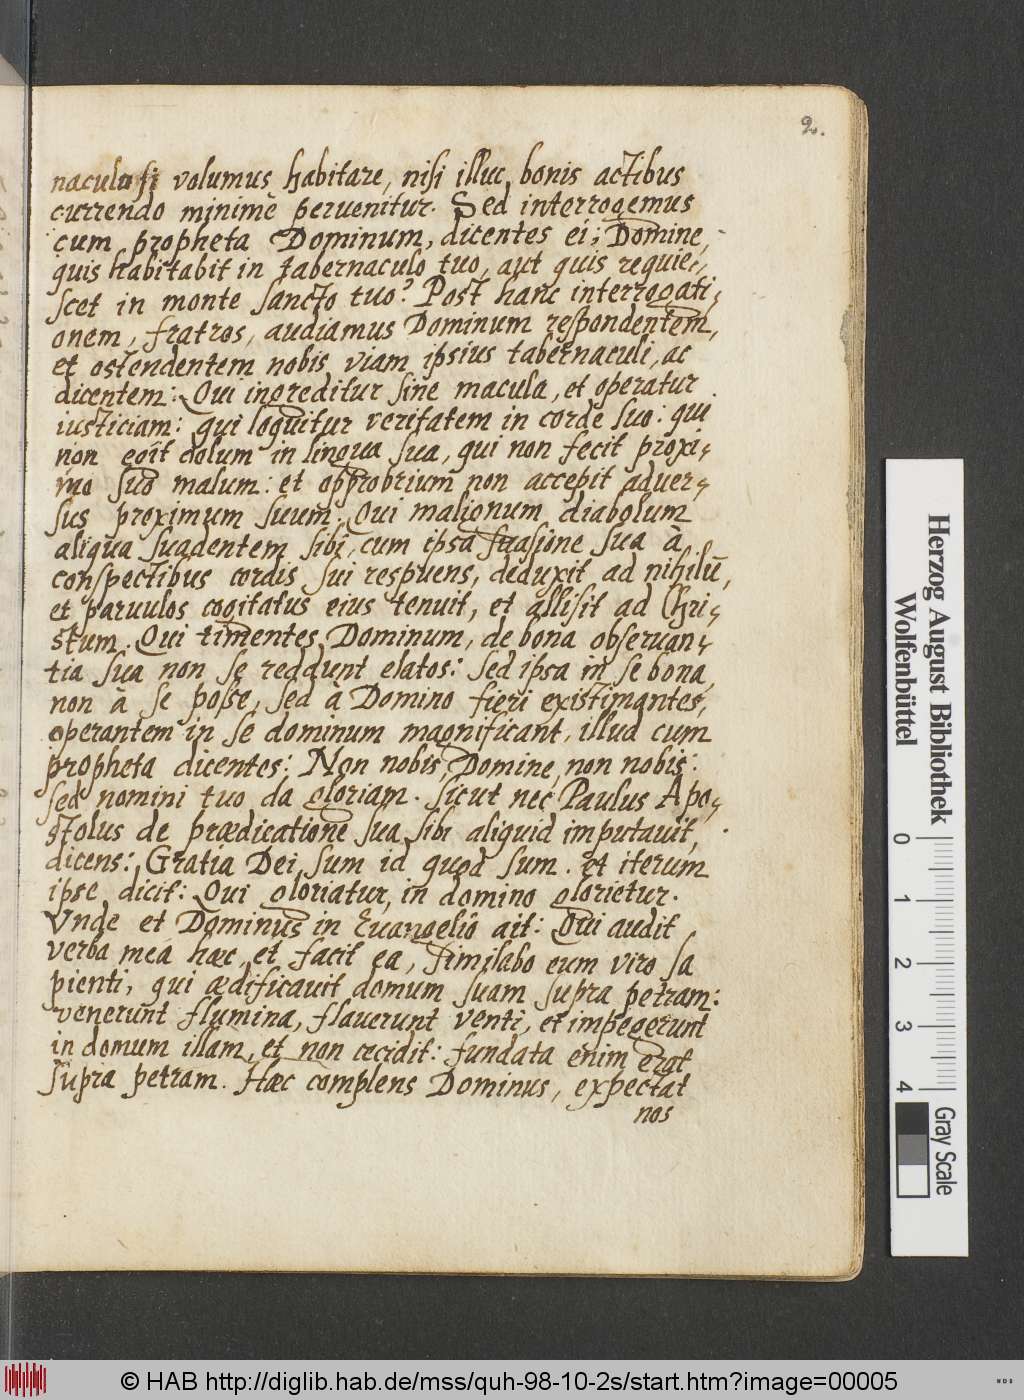 2.
naculo si volumus habitare, nisi illuc bonis actibus
currendo minimè peruenitur. Sed interrogemus
cum propheta Dominum, dicentes ei; Domine,
quis habitabit in tabernaculo tuo, aut quis requie-
scet in monte sancto tuo? Post hanc interrogati-
onem, fratres, audiamus Dominum respondentem,
et ostendentem nobis viam ipsius tabernaculi, ac
dicentem: Qui ingreditur sine macula, et operatur
iusticiam: qui loquitur veritatem in corde suo: qui
non egit dolum in lingua sua, qui non fecit proxi-
mo suo malum: et opprobrium non accepit aduer-
sus proximum suum. Qui malignum diabolum
aliqua suadentem sibi, cum ipsa suasione sua à
conspectibus cordis sui respuens, deduxit ad nihilū,
et paruulos cogitatus eius tenuit, et allisit ad Chri-
stum. Qui timentes Dominum, de bona obseruan-
tia sua non se reddunt elatos: sed ipsa in se bona
non à se posse, sed a Domino fieri existimantes,
operantem in se dominum magnificant, illud cum
propheta dicentes: Non nobis Domine non nobis:
sed nomini tuo da gloriam. Sicut nec Paulus Apo-
stolus de prædicatione sua sibi aliquid imputauit,
dicens: Gratia Dei sum id quod sum. et iterum
ipse dicit: Qui gloriatur, in domino glorietur.
Vnde et Dominus in Euangelio ait: Qui audit
verba mea hæc, et facit ea, similabo eum viro sa
pienti, qui ædificauit domum suam supra petram:
venerunt flumina, flauerunt venti, et impegerunt
in domum illam, et non cecidit: fundata enim erat
supra petram. Hæc complens Dominus, expectat
nos
Herzog August Bibliothek
Wolfenbüttel
0
1
2
3
4
Gray Scale
© HAB http://diglib.hab.de/mss/quh-98-10-2s/start.htm?image=00005